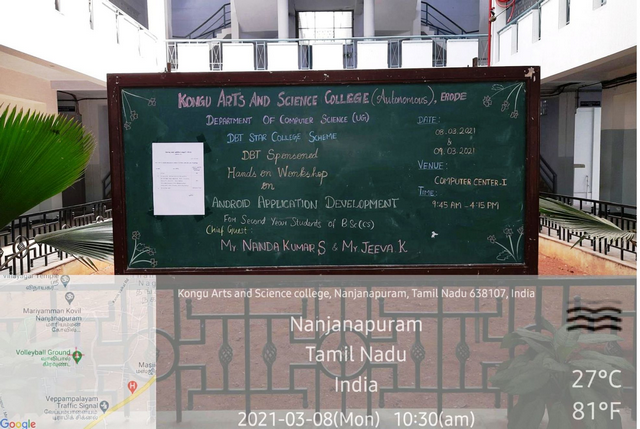 KONGU ARTS AND SCIENCE COLLEGE (Autonomous), ERODE
DEPARTMENT OF COMPUTER SCIENCE (UG)
DBT STAR COLLEGE SCHEME
DBT Sponsored
Hands on Workshop
on
ANDROID APPLICATION DEVELOPMENT
For Second Year Students of B.Sc(CS)
Chief Guest:
Mr NANDA KUMAR S & Mr JEEVA K
DATE:
08.03.2021
to
09.03.2021
VENUE:
COMPUTER CENTER-I
TIME:
9:45 AM - 4:15 PM
Kongu Arts and Science college, Nanjanapuram, Tamil Nadu 638107, India
Nanjanapuram
Tamil Nadu
India
2021-03-08(Mon) 10:30(am)
27°C
81°F
Mariyamman Kovil
Nanjanapuram
Volleyball Ground
Veppampalayam
Traffic Signal
H
Google